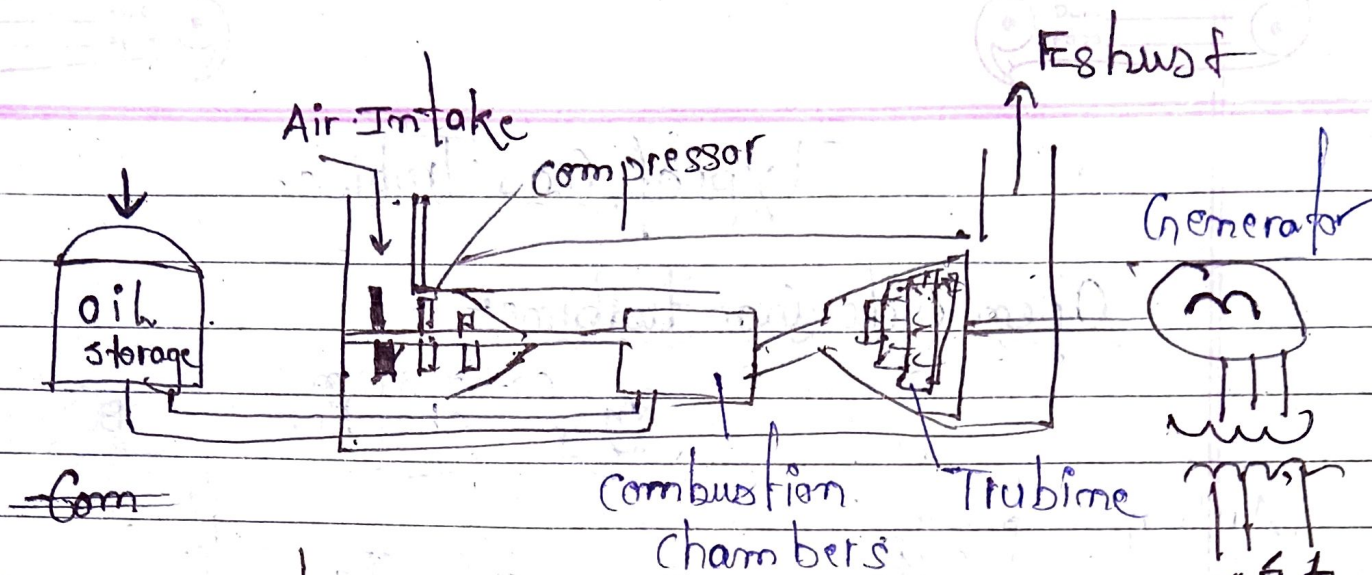 Eshust
Air Intake
compressor
Generator
oil
storage
Com
combustion
chambers
Trubine